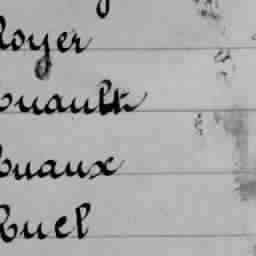 Royer
Ruault
Ruaux
Ruel